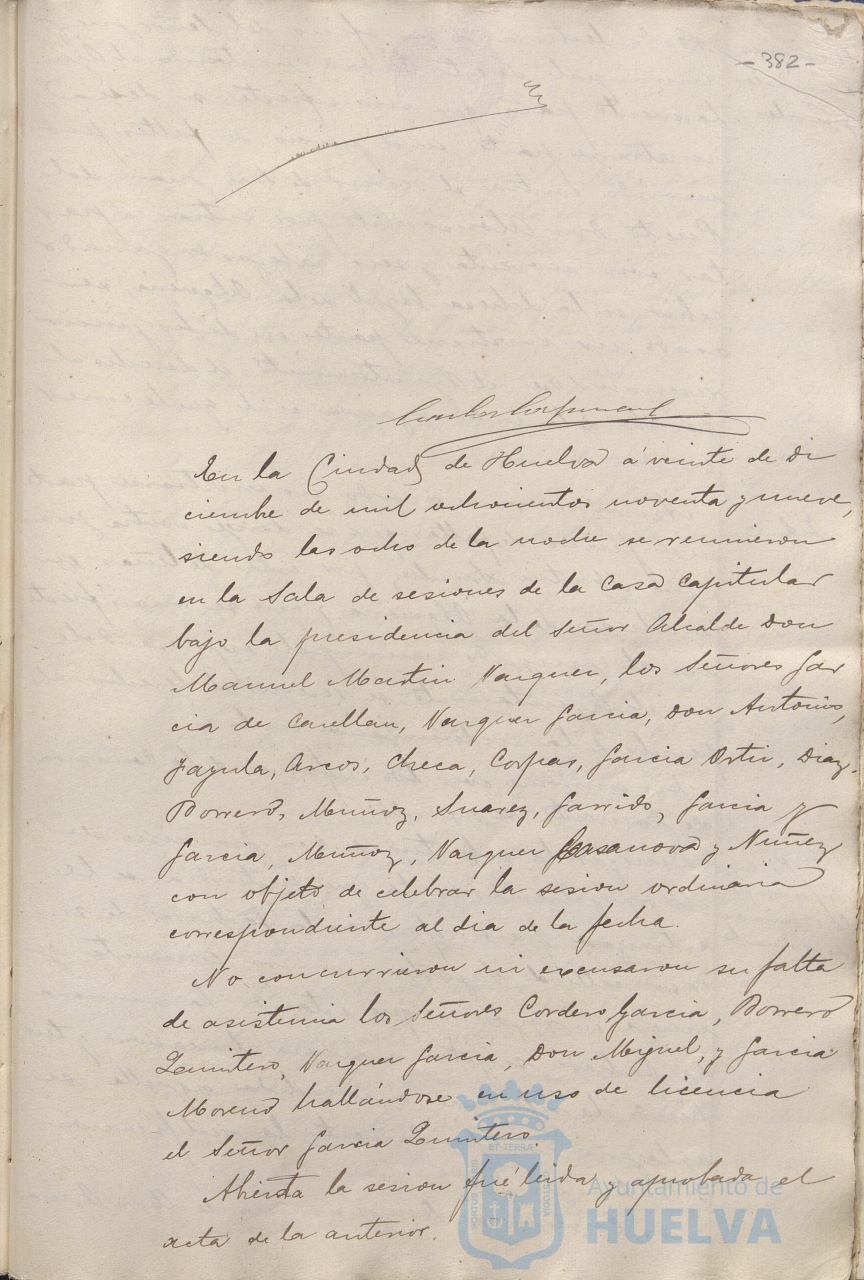 - 382 -
En la Ciudad de Huelva á veinte de Di
ciembre de mil ochocientos noventa y nueve,
siendo las ocho de la noche se reunieron
en la Sala de sesiones de la Casa Capitular
bajo la presidencia del Señor Alcalde Don
Manuel Martin Vazquez, los Señores Gar
cia de Casellan, Vazquez Garcia, Don Antonio,
Jazula, Arcos, Checa, Corpas, Garcia Ortiz, Diaz,
Borrero, Muñoz, Suarez, Garrido, Garcia y
Garcia, Muñoz, Vazquez Casanova y Nuñez
con objeto de celebrar la sesion ordinaria
correspondiente al dia de la fecha.
No concurrieron ni excusaron su falta
de asistencia los Señores Cordero Garcia, Borrero
Quintero, Vazquez Garcia, Don Miguel, y Garcia
Moreno hallándose en uso de licencia
el Señor Garcia Quintero.
Abierta la sesion fué leida y aprobada el
acta de la anterior.
Ayuntamiento de
HUELVA